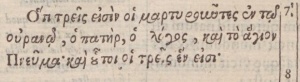 Ὅτι τρεῖς εἰσὶν οἱ μαρτυροῦντες ἐν τῷ 7.
οὐρανῷ, ὁ πατὴρ, ὁ λόγος, καὶ τὸ ἅγιον
Πνεῦμα· καὶ οὗτοι οἱ τρεῖς ἕν εἰσι·
8